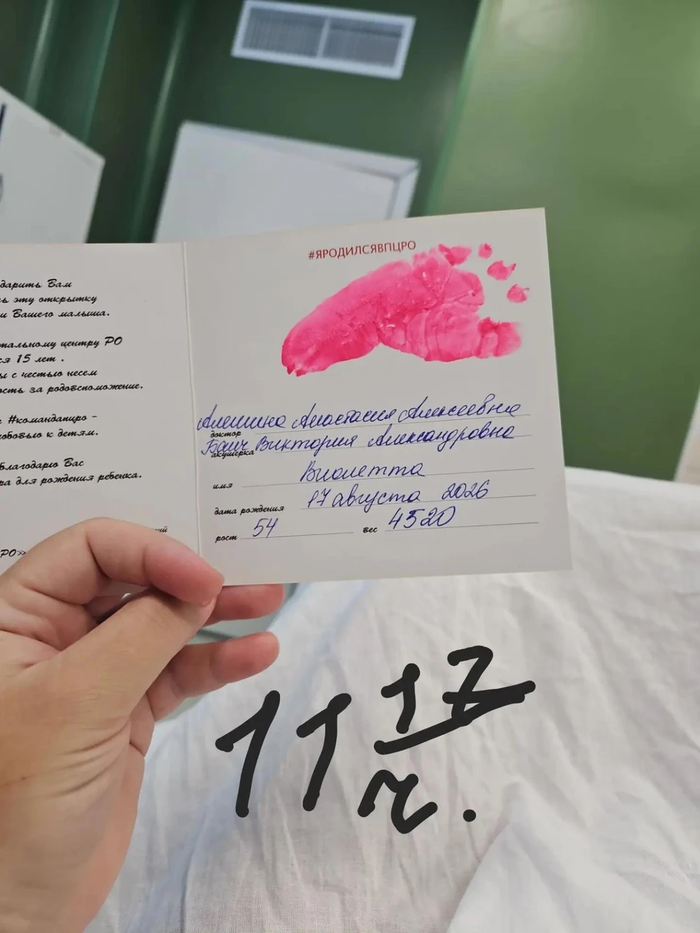 дарить Вам
ь эту открытку
и Вашего малыша.
тальному центру РО
ся 15 лет .
ы с честью несем
ость за родовспоможение.
с #командапцро -
юбовью к детям.
благодарю Вас
ра для рождения ребенка.
РО»
#ЯРОДИЛСЯВПЦРО
Алешина Анастасия Алексеевна
доктор
Виктория Александровна
акушерка
имя Виолетта
дата рождения 17 августа 2026
рост 54 вес 4520
11 17 ч.